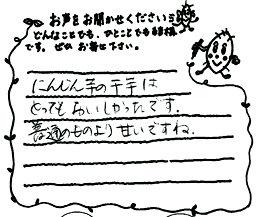 お声をお聞かせください
どんなことでも、ひとことでも結構
です。ぜひ お寄せ下さい。
にんじん芋の干芋は
とってもおいしかったです。
普通のものより甘いですね。